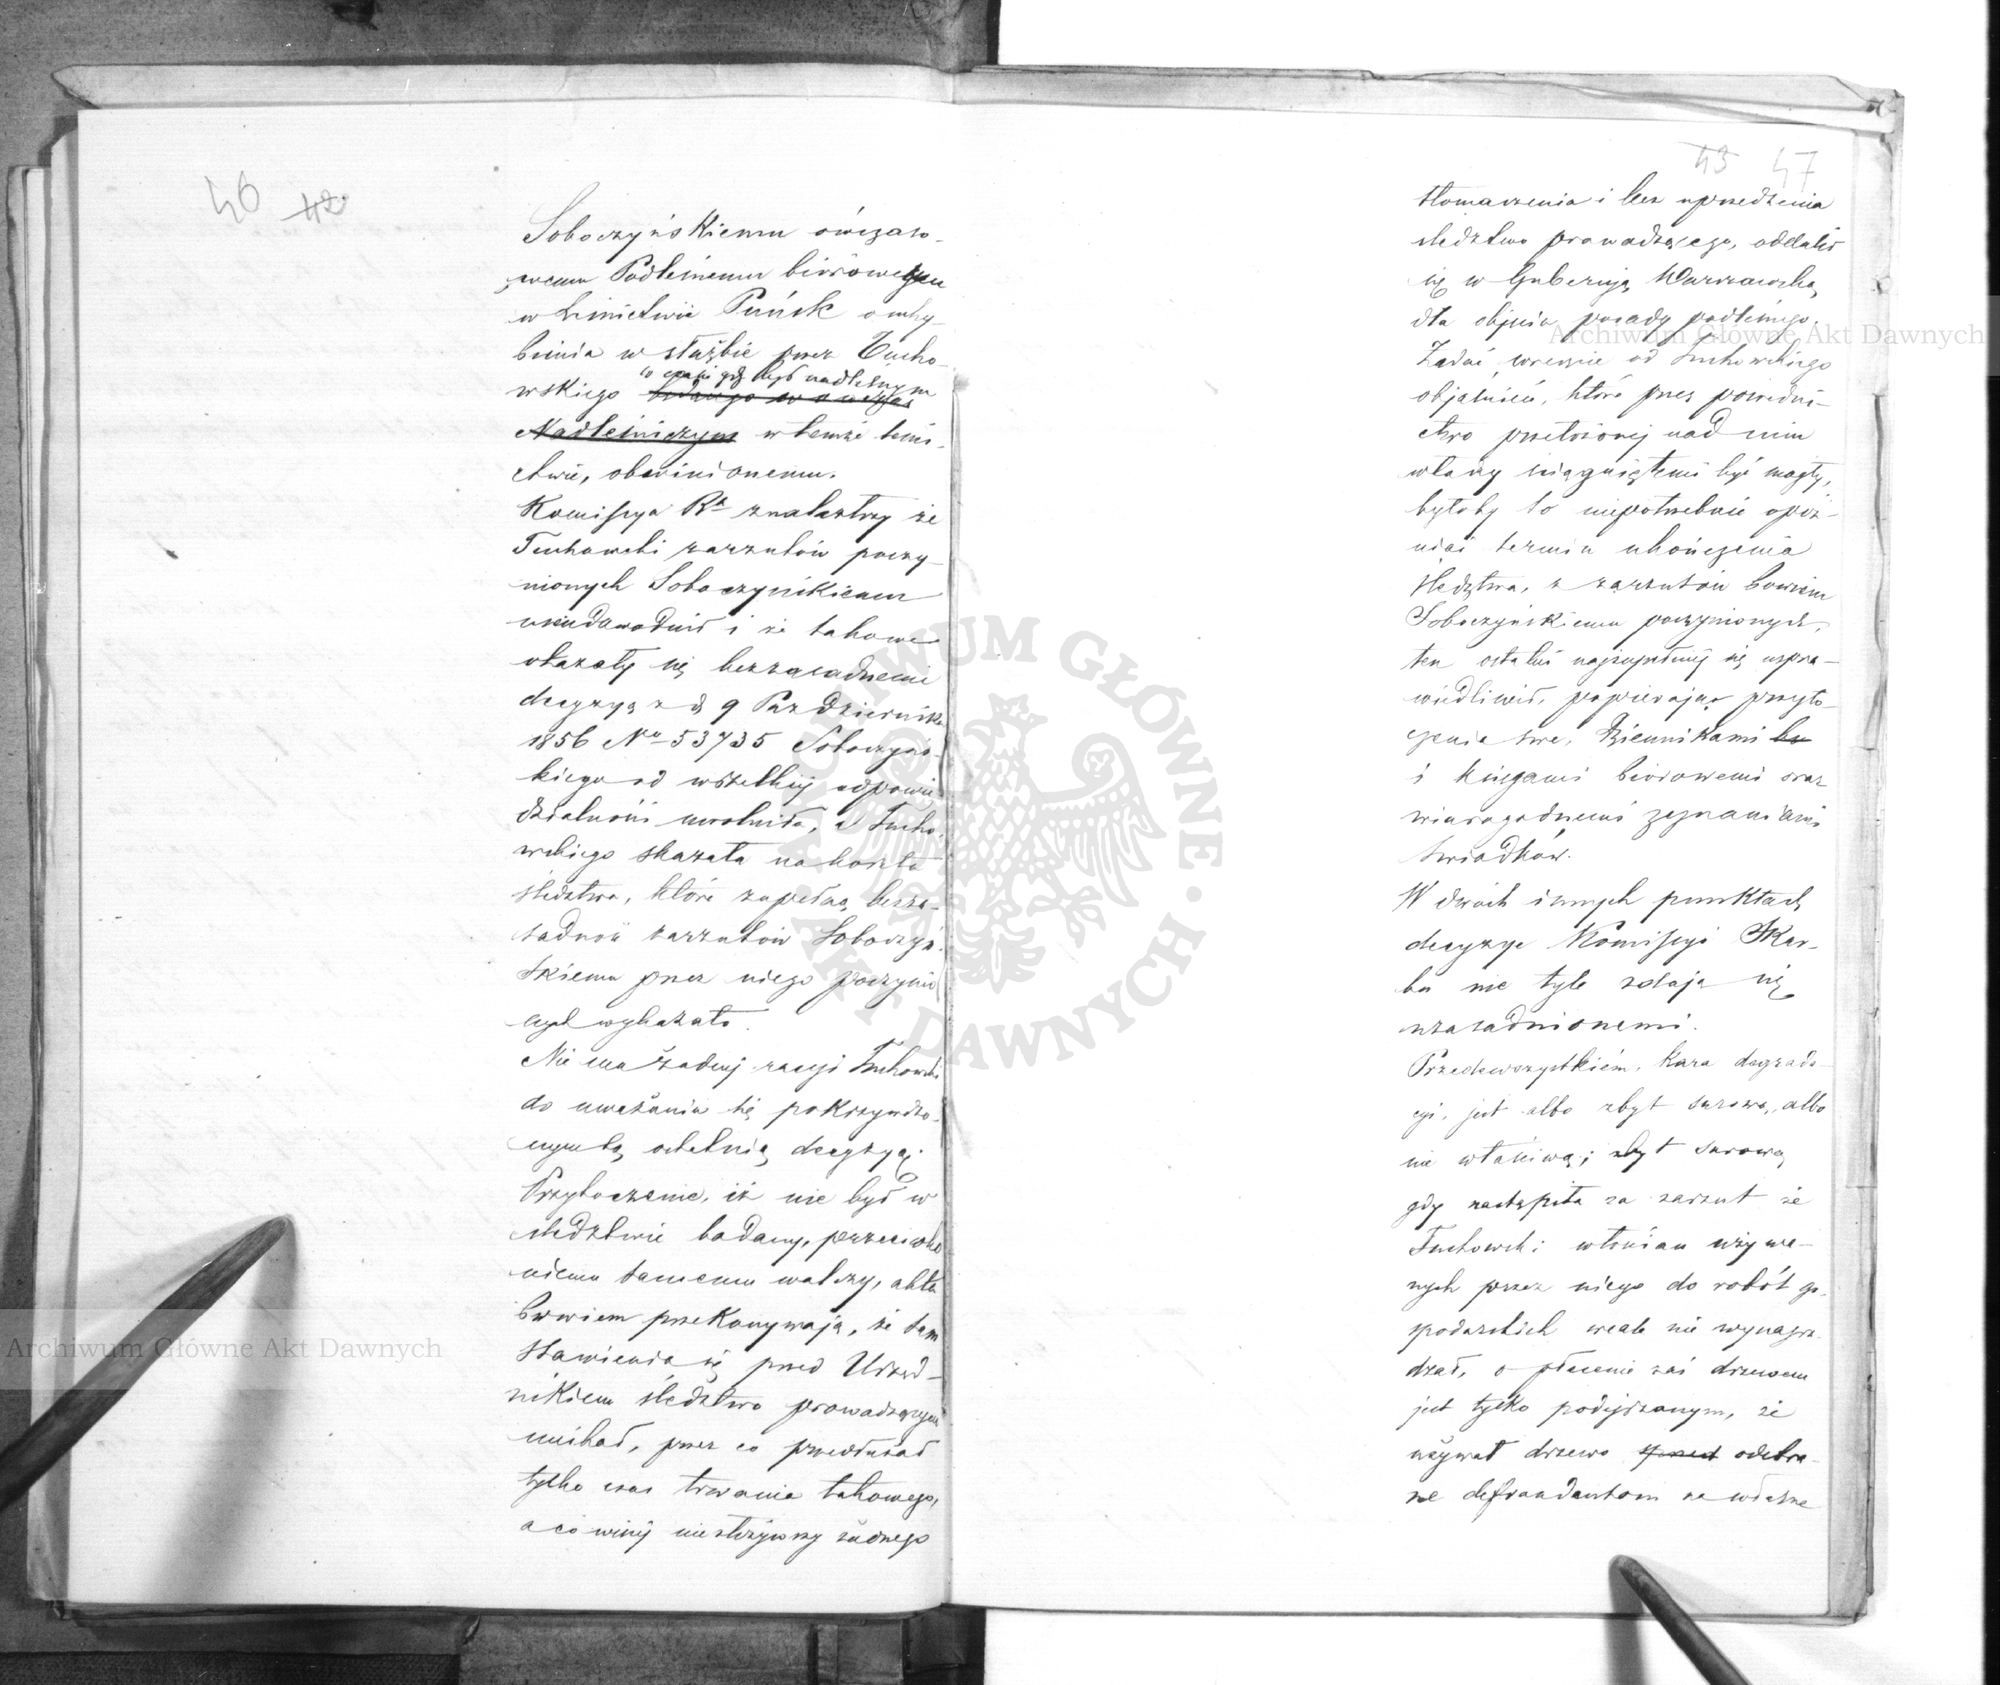 46 42
Soboczyńskiemu ówczaso-
wemu Podleśnemu biórowemu
w Leśnictwie Puńsk o uchy-
bienia w służbie przez Tucho-
w czasie gdy był nadleśnym
wskiego będącego w ówczas
Nadleśniczym w temże leśni-
ctwie, obwinionemu.
Komissya Rz znalazłszy że
Tuchowski zarzutów poczy-
nionych Soboczyńskiemu
nieudowodnił i że takowe
okazały się bezzasadnemi
decyzyą z d 9 Października
1856 No 53735 Soboczyńs-
kiego od wszelkiej odpowie-
dzialności uwolniła, a Tucho-
wskiego skazała na koszta
śledztwa, które zupełną bezza-
sadność zarzutów Soboczyń-
skiemu przez niego poczynio
nych wykazało.
Nie ma żadnej racyi Tuchowski
do uważania się pokrzywdzo-
nym tą ostatnią decyzyą.
Przytoczenie, iż nie był w
śledztwie badany, przeciwko
niemu samemu walczy, akta
bowiem przekonywają, że sam
stawienia się przed Urzęd-
nikiem śledztwo prowadzącym
unikał, przez co przedłużał
tylko czas trwania takowego,
a co więcej nie złożywszy żadnego
43 47
tłomaczenia i bez uprzedzenia
śledztwo prowadzącego, oddalił
się w Gubernją Warszawską
dla objęcia posady podleśnego.
Żądać wreszcie od Tuchowskiego
objaśnień, które przez pośredni-
ctwo przełożonej nad nim
władzy ściągniętemi być mogły,
byłoby to niepotrzebnie opóź-
niać termin ukończenia
śledztwa, z zarzutów bowiem
Soboczyńskiemu poczynionych,
ten ostatni najzupełniej się uspra-
wiedliwił, popierając przyto-
czenia swe, Dziennikami bu
i księgami biórowemi oraz
wiarogodnemi zeznaniami
świadków.
W dwóch innych punktach
decyzye Komissyi Skar-
bu nie tyle zdają się
uzasadnionemi.
Przedewszystkiém, kara degrada-
cyi, jest albo zbyt surową, albo
nie właściwą; zbyt surową
gdy nastąpiła za zarzut że
Tuchowski włościan używa-
nych przez niego do robót go-
spodarskich wcale nie wynagra-
dzał, o płacenie zaś drzewem
jest tylko podejrzanym, że
używał drzewo przed odebra-
ne defraudantom na własne